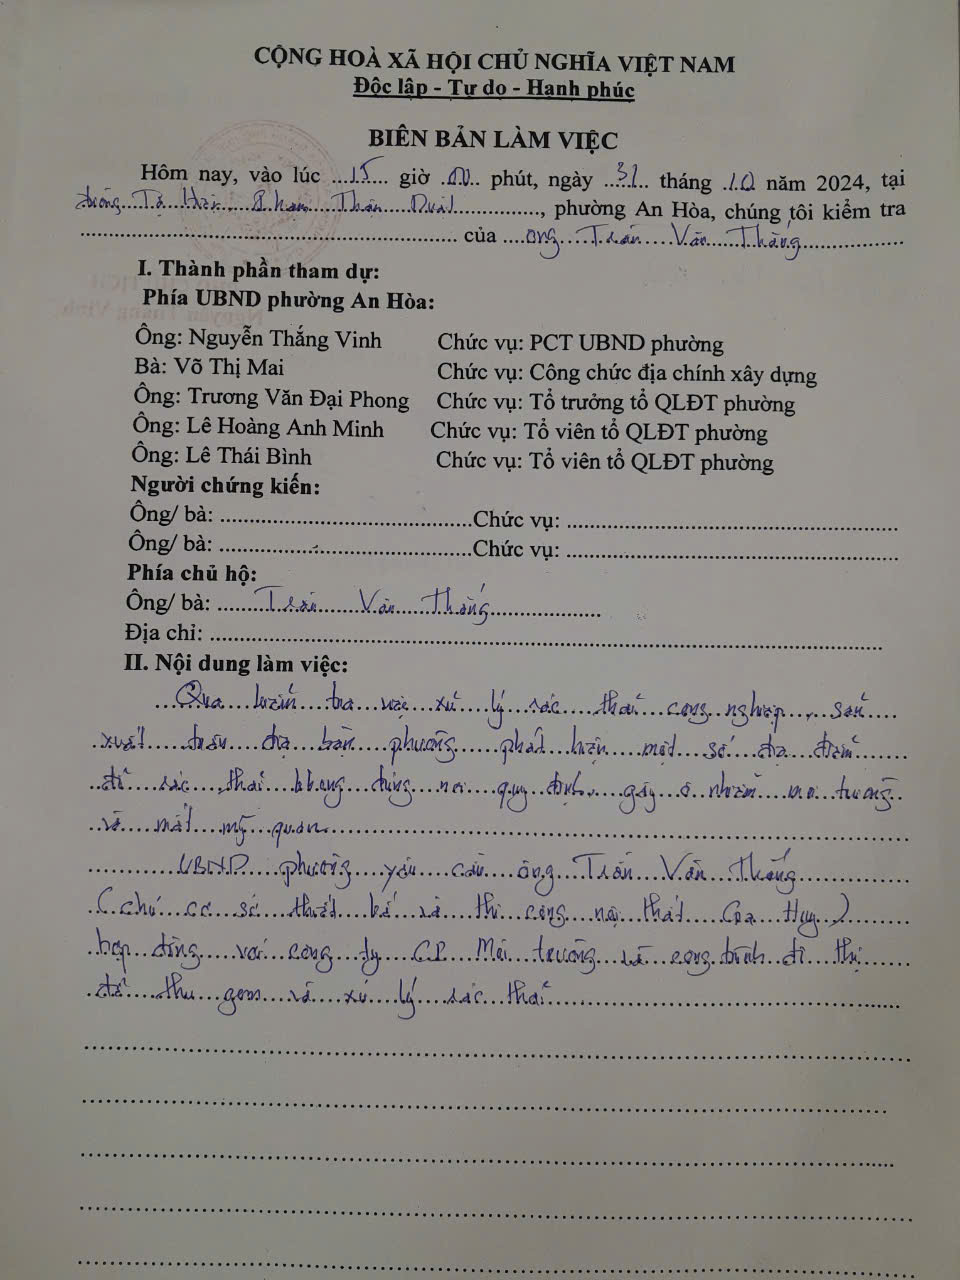 CỘNG HOÀ XÃ HỘI CHỦ NGHĨA VIỆT NAM
Độc lập - Tự do - Hạnh phúc
BIÊN BẢN LÀM VIỆC
Hôm nay, vào lúc ...15... giờ ... phút, ngày ...31... tháng .10 năm 2024, tại
đường Tạ Phạm Thận Duật..............., phường An Hòa, chúng tôi kiểm tra
............................................................... của ....ông....Trần....Văn....Thắng.................
I. Thành phần tham dự:
Phía UBND phường An Hòa:
Ông: Nguyễn Thắng Vinh Chức vụ: PCT UBND phường
Bà: Võ Thị Mai Chức vụ: Công chức địa chính xây dựng
Ông: Trương Văn Đại Phong Chức vụ: Tổ trưởng tổ QLĐT phường
Ông: Lê Hoàng Anh Minh Chức vụ: Tổ viên tổ QLĐT phường
Ông: Lê Thái Bình Chức vụ: Tổ viên tổ QLĐT phường
Người chứng kiến:
Ông/ bà: ..........................................Chức vụ: .......................................................
Ông/ bà: ..........................................Chức vụ: .......................................................
Phía chủ hộ:
Ông/ bà: ......Trần......Văn....Thắng...................
Địa chỉ: ................................................................................................................
II. Nội dung làm việc:
Qua kiểm tra việc xử lý rác thải công nghiệp, sản
xuất trên địa bàn phường phát hiện một số địa điểm
để rác thải không đúng nơi quy định, gây ô nhiễm môi trường
và mất mỹ quan
UBND phường yêu cầu ông Trần Văn Thắng
(chủ cơ sở thiết kế và thi công nội thất Gia Huy)
hợp đồng với công ty CP Môi trường và công trình đô thị
để thu gom và xử lý rác thải